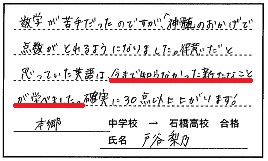 数学が苦手だったのですが、「神髄」のおかげで
点数がとれるようになりました。得意だと
思っていた英語は今まで知らなかった新たなこと
が学べました。確実に30点以上上がります。
本郷 中学校 → 石橋高校 合格
氏名 戸谷梨乃